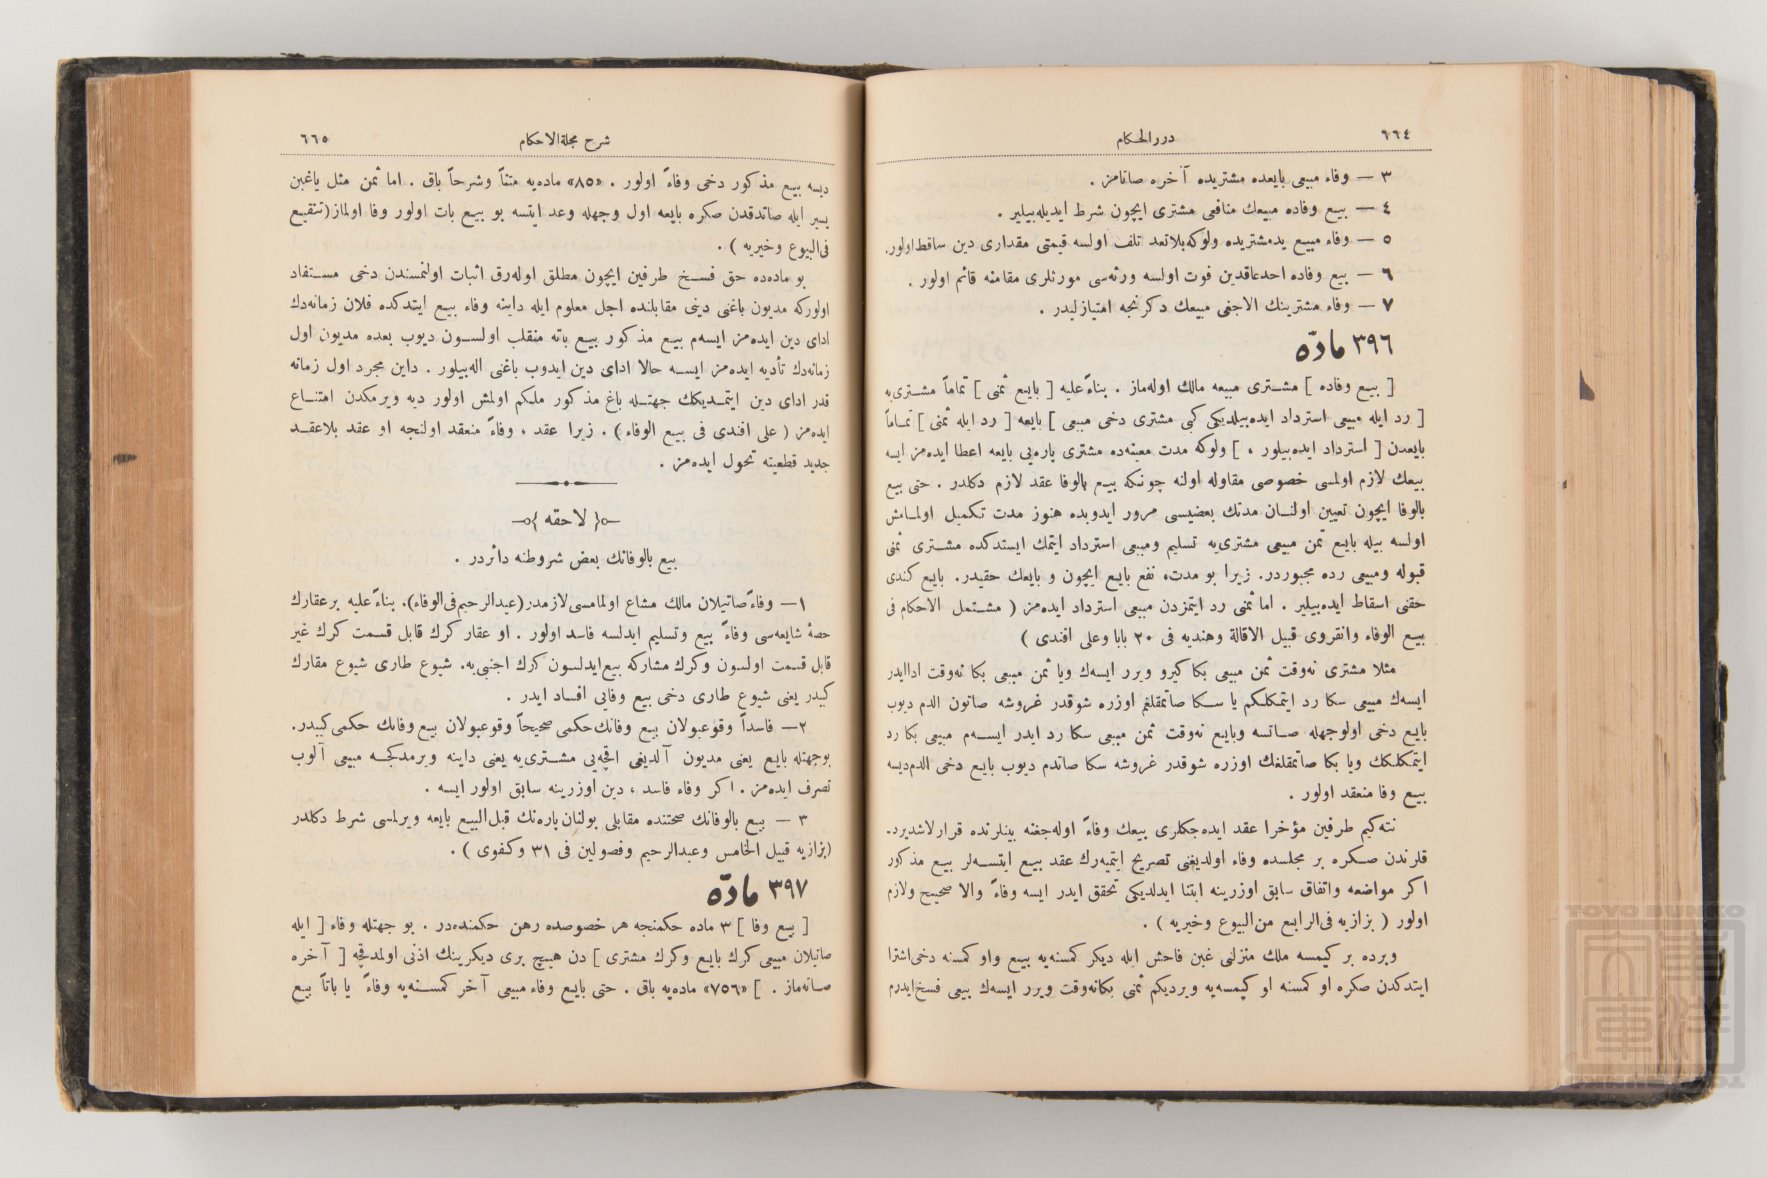 ٦٦٤
دررالحكام
٣ — وفاء مبيعی بايعده مشتريده آخره صاتامز .
٤ — بيع وفاده مبيعك منافعی مشتری ايچون شرط ايديله‌بيلير .
٥ — وفاء مبيع يدمشتريده ولوكه‌بلاتعد تلف اولسه قيمتی مقداری دين ساقط‌اولور.
٦ — بيع وفاده احدعاقدين فوت اولسه ورثه‌سی مورثلری مقامنه قائم اولور .
٧ — وفاء مشترينك الاجغی مبيعك دكرنجه امتيازليدر .
٣٩٦ مادّه
[ بيع وفاده ] مشتری مبيعه مالك اوله‌ماز . بناءً عليه [ بايع ثمنی ] تماماً مشتری‌يه
[ رد ايله مبيعی استرداد ايده‌بيلديكی كبی مشتری دخی مبيعی ] بايعه [ رد ايله ثمنی ] تماماً
بايعدن [ استرداد ايده‌بيلور . ] ولوكه مدت معينه‌ده مشتری پاره‌يی بايعه اعطا ايده‌مز ايسه
بيعك لازم اولمسی خصوصی مقاوله اولنه چونكه بيع بالوفا عقد لازم دكلدر . حتی بيع
بالوفا ايچون تعيين اولنان مدتك بعضيسی مرور ايدوبده هنوز مدت تكميل اولمامش
اولسه بيله بايع ثمن مبيعی مشتری‌يه تسليم ومبيعی استرداد ايتمك ايستدكده مشتری ثمنی
قبوله ومبيعی رده مجبوردر. زيرا بو مدت، نفع بايع ايچون و بايعك حقيدر. بايع كندی
حقنی اسقاط ايده‌بيلير . اما ثمنی رد ايتمزدن مبيعی استرداد ايده‌مز ( مشتمل الاحكام فی
بيع الوفاء وانقروی قبيل الاقالة وهنديه فی ٢٠ بابا وعلی افندی )
مثلا مشتری نه‌وقت ثمن مبيعی بكا كيرو ويرر ايسه‌ك ويا ثمن مبيعی بكا نه‌وقت اداايدر
ايسه‌ك مبيعی سكا رد ايتمكلكم يا سكا صاتمقلغم اوزره شوقدر غروشه صاتون الدم ديوب
بايع دخی اولوجهله صاتسه وبايع نه‌وقت ثمن مبيعی سكا رد ايدر ايسه‌م مبيعی بكا رد
ايتمكلكك ويا بكا صاتمقلغك اوزره شوقدر غروشه سكا صاتدم ديوب بايع دخی الدم‌ديسه
بيع وفا منعقد اولور .
نته‌كيم طرفين مؤخرا عقد ايده‌جكلری بيعك وفاءً اوله‌جغنه بينلرنده قرارلاشديرد.
قلرندن صكره بر مجلسده وفاء اولديغنی تصريح ايتميه‌رك عقد بيع ايتسه‌لر بيع مذكور
اكر مواضعه واتفاق سابق اوزرينه ابتنا ايدلديكی تحقق ايدر ايسه وفاءً والا صحيح ولازم
اولور ( بزازيه فی‌الرابع من‌البيوع وخيريه ) .
وبرده بر كيمسه ملك منزلنی غبن فاحش ايله ديكر كمسنه‌يه بيع واو كمسنه دخی‌اشترا
ايتدكدن صكره او كمسنه او كيمسه‌يه ويرديكم ثمنی بكانه‌وقت ويرر ايسه‌ك بيعی فسخ‌ايدرم
شرح مجلةالاحكام
٦٦٥
ديسه بيع مذكور دخی وفاءً اولور . «٨٥» ماده‌يه متناً وشرحاً باق . اما ثمن مثل ياغبن
يسير ايله صاتدقدن صكره بايعه اول وجهله وعد ايتسه بو بيع بات اولور وفا اولماز(تنقيح
فی‌البيوع وخيريه ) .
بو ماده‌ده حق فسخ طرفين ايچون مطلق اوله‌رق اثبات اولنمسندن دخی مستفاد
اولوركه مديون باغنی دينی مقابلنده اجل معلوم ايله داينه وفاء بيع ايتدكده فلان زمانه‌دك
ادای دين ايده‌مز ايسه‌م بيع مذكور بيع باته منقلب اولسون ديوب بعده مديون اول
زمانه‌دك تأديه ايده‌مز ايسه حالا ادای دين ايدوب باغنی اله‌بيلور . داين مجرد اول زمانه
قدر ادای دين ايتمديكك جهتله باغ مذكور ملكم اولمش اولور ديه ويرمكدن امتناع
ايده‌مز ( علی افندی فی بيع الوفاء ) . زيرا عقد ، وفاءً منعقد اولنجه او عقد بلاعقد
جديد قطعيته تحول ايده‌مز .
﴿ لاحقه ﴾
بيع بالوفانك بعض شروطنه دائردر .
١— وفاءً صاتيلان مالك مشاع اولمامسی لازمدر(عبدالرحيم‌فی‌الوفاء). بناءً عليه برعقارك
حصهٔ شايعه‌سی وفاءً بيع وتسليم ايدلسه فاسد اولور . او عقار كرك قابل قسمت كرك غير
قابل قسمت اولسون وكرك مشاركه بيع‌ايدلسون كرك اجنبی‌يه. شيوع طاری شيوع مقارك
كبيدر يعنی شيوع طاری دخی بيع وفايی افساد ايدر .
٢— فاسداً وقوعبولان بيع وفانك‌حكمی صحيحاً وقوعبولان بيع وفانك حكمی كبيدر.
بوجهتله بايع يعنی مديون آلديغی اقچه‌يی مشتری‌يه يعنی داينه ويرمدكجه مبيعی آلوب
تصرف ايده‌مز . اكر وفاء فاسد ، دين اوزرينه سابق اولور ايسه .
٣ — بيع بالوفانك صحتنده مقابلی بولنان پاره‌نك قبل‌البيع بايعه ويرلمسی شرط دكلدر
(بزازيه قبيل الخامس وعبدالرحيم وفصولين فی ٣١ وكفوی ) .
٣٩٧ مادّه
[ بيع وفا ] ٣ ماده حكمنجه هر خصوصده رهن حكمنده‌در . بو جهتله وفاء [ ايله
صاتيلان مبيعی كرك بايع وكرك مشتری ] دن هيچ بری ديكرينك اذنی اولمدقچه [ آخره
صاته‌ماز . ] «٧٥٦» ماده‌يه باق . حتی بايع وفاء مبيعی آخر كمسنه‌يه وفاءً يا باتاً بيع
TOYO BUNKO